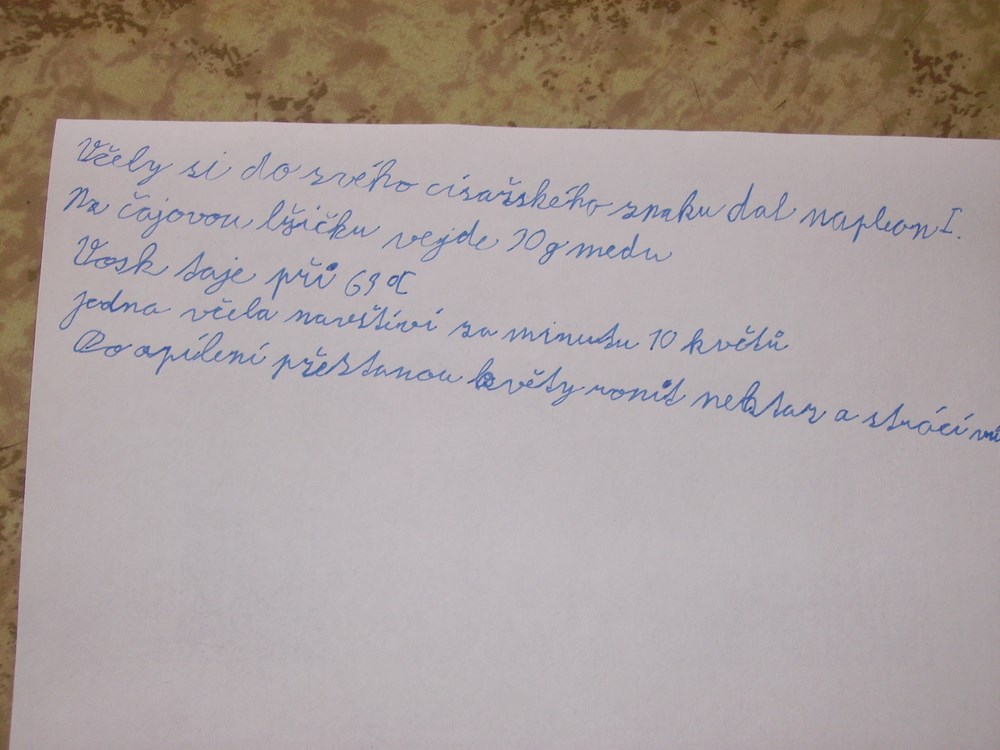 Včely si do svého císařského znaku dal napleon I.
Na čajovou lžičku vejde 10g medu
Vosk taje při 63 °C
jedna včela navštíví za minutu 10 květů
Po opílení přestanou květy ronit nektar a strácí